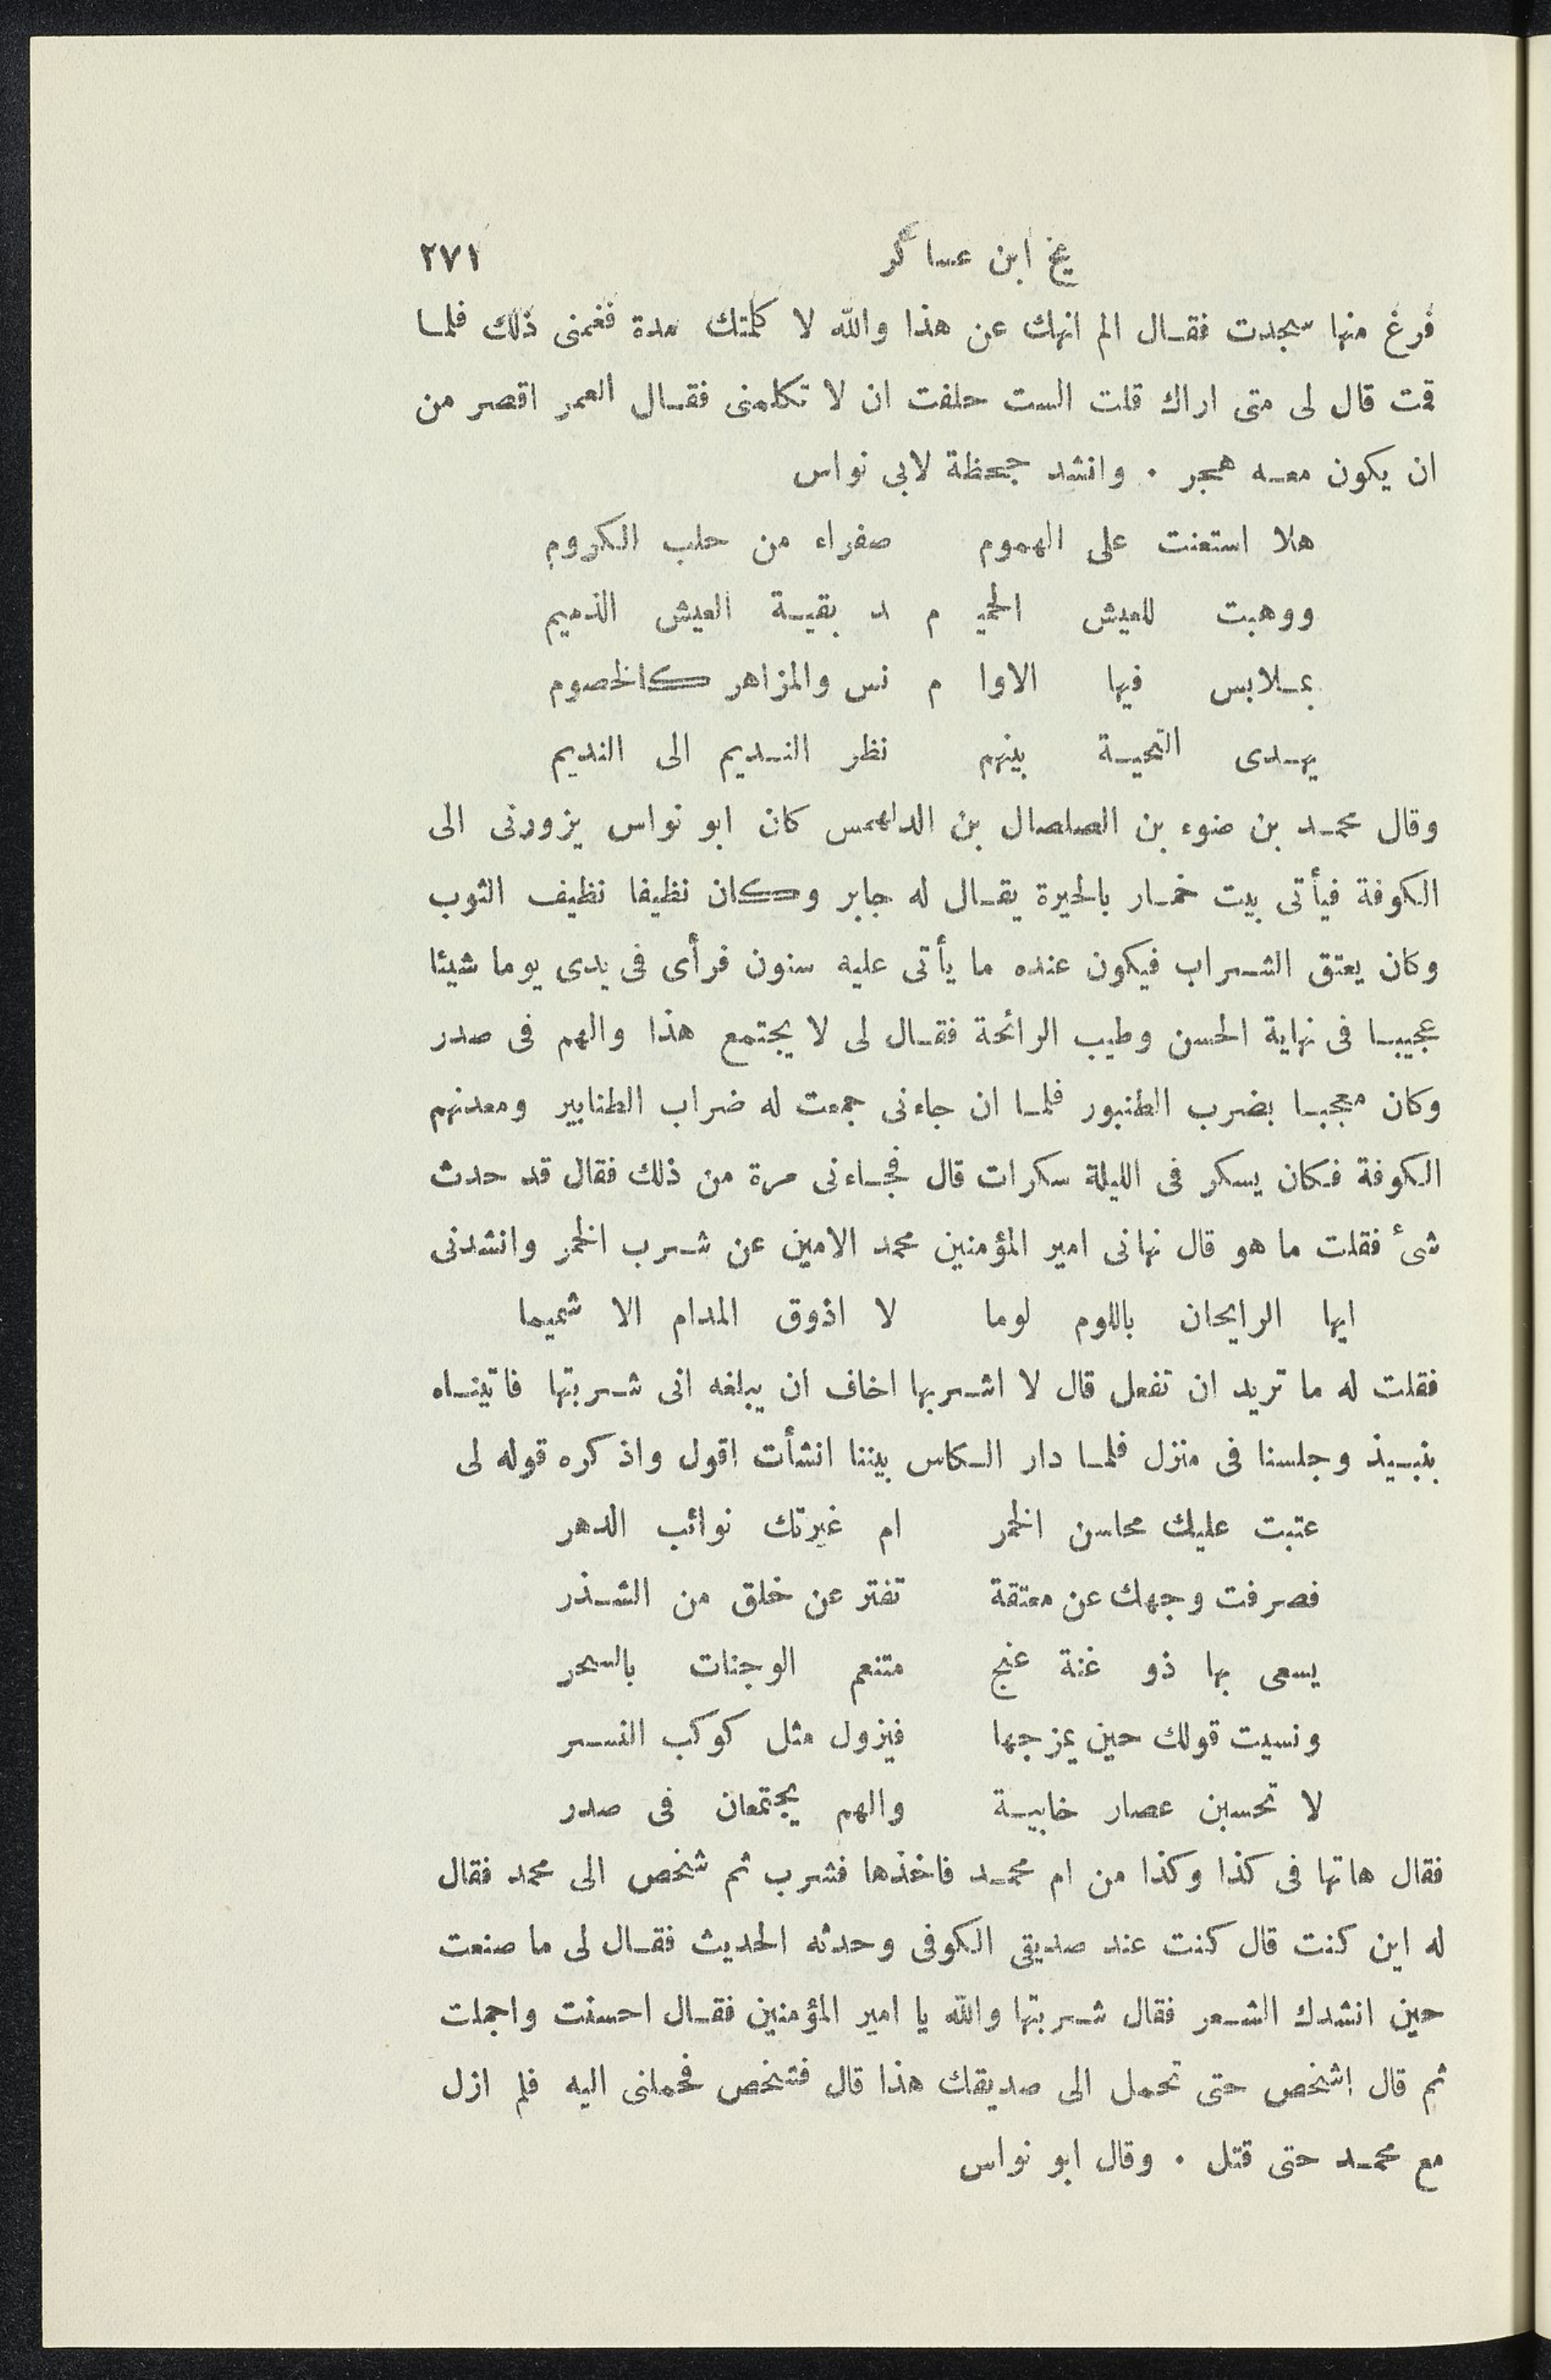 يخ ابن عساكر ٢٧١
فرغ منها سجدت فقال الم انهك عن هذا والله لا كلمتك مدة فغمنى ذلك فلما
قمت قال لى متى اراك قلت الست حلفت ان لا تكلمنى فقال العمر اقصر من
ان يكون معه هجر . وانشد جحظة لابى نواس
هلا استعنت على الهموم صفراء من حلب الكروم
ووهبت للعيش الحمي م د بقية العيش الذميم
بملابس فيها الاوا م نس والمزاهر كالخصوم
يهدى التحية بينهم نظر النديم الى النديم
وقال محمد بن ضوء بن الصلصال بن الدلهمس كان ابو نواس يزورنى الى
الكوفة فيأتى بيت خمار بالحيرة يقال له جابر وكان نظيفا نظيف الثوب
وكان يعتق الشراب فيكون عنده ما يأتى عليه سنون فرأى فى يدى يوما شيئا
عجيبا فى نهاية الحسن وطيب الرائحة فقال لى لا يجتمع هذا والهم فى صدر
وكان معجبا بضرب الطنبور فلما ان جاءنى جمعت له ضراب الطنابير ومعدنهم
الكوفة فكان يسكر فى الليلة سكرات قال فجاءنى مرة من ذلك فقال قد حدث
شئ فقلت ما هو قال نهانى امير المؤمنين محمد الامين عن شرب الخمر وانشدنى
ايها الرايحان باللوم لوما لا اذوق المدام الا شميما
فقلت له ما تريد ان تفعل قال لا اشربها اخاف ان يبلغه انى شربتها فاتيناه
بنبيذ وجلسنا فى منزل فلما دار الكاس بيننا انشأت اقول واذكره قوله لى
عتبت عليك محاسن الخمر ام غيرتك نوائب الدهر
فصرفت وجهك عن معتقة تفتر عن خلق من الشذر
يسعى بها ذو غنة غنج متنعم الوجنات بالسحر
ونسيت قولك حين يمزجها فيزول مثل كوكب النسر
لا تحسبن عصار خابية والهم يجتمعان فى صدر
فقال هاتها فى كذا وكذا من ام محمد فاخذها فشرب ثم شخص الى محمد فقال
له اين كنت قال كنت عند صديقى الكوفى وحدثه الحديث فقال لى ما صنعت
حين انشدك الشعر فقال شربتها والله يا امير المؤمنين فقال احسنت واجملت
ثم قال اشخص حتى تحمل الى صديقك هذا قال فشخص فحملنى اليه فلم ازل
مع محمد حتى قتل . وقال ابو نواس